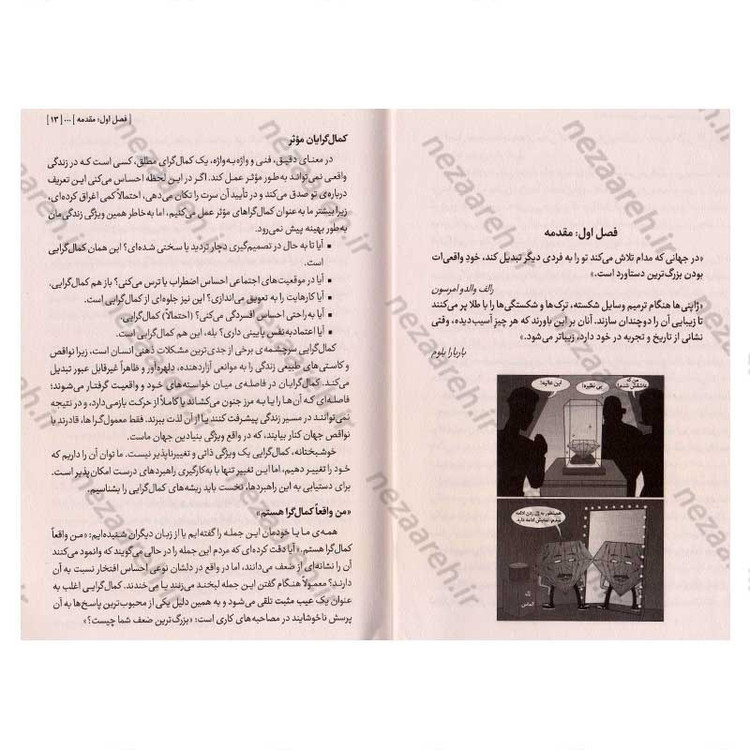 فصل اول: مقدمه
«در جهانی که مدام تلاش می‌کند تو را به فردی دیگر تبدیل کند، خودِ واقعی‌ات
بودن بزرگ‌ترین دستاورد است.»
رالف والدو امرسون
«ژاپنی‌ها هنگام ترمیم وسایل شکسته، ترک‌ها و شکستگی‌ها را با طلا پر می‌کنند
تا زیبایی آن را دوچندان سازند. آنان بر این باورند که هر چیزِ آسیب‌دیده، وقتی
نشانی از تاریخ و تجربه در خود دارد، زیباتر می‌شود.»
باربارا بلوم
این عالیه!
بی نظیره!
عاشقش شدم!
[ فصل اول: مقدمه | ... | ۱۳ ]
کمال‌گرایان مؤثر
در معنای دقیق، فنی و واژه‌به‌واژه، یک کمال‌گرای مطلق، کسی است که در زندگی
واقعی نمی‌تواند به‌طور مؤثر عمل کند. اگر در این لحظه احساس می‌کنی این تعریف
درباره‌ی تو صدق می‌کند و در تأیید آن سرت را تکان می‌دهی، احتمالاً کمی اغراق کرده‌ای،
زیرا بیشتر ما به عنوان کمال‌گراهای مؤثر عمل می‌کنیم، اما به‌خاطر همین ویژگی زندگی‌مان
به‌طور بهینه پیش نمی‌رود.
▪ آیا تا به حال در تصمیم‌گیری دچار تردید یا سختی شده‌ای؟ این همان کمال‌گرایی
است.
▪ آیا در موقعیت‌های اجتماعی احساس اضطراب یا ترس می‌کنی؟ باز هم کمال‌گرایی.
▪ آیا کارهایت را به تعویق می‌اندازی؟ این نیز جلوه‌ای از کمال‌گرایی است.
▪ آیا به‌راحتی احساس افسردگی می‌کنی؟ (احتمالاً) کمال‌گرایی.
▪ آیا اعتمادبه‌نفس پایینی داری؟ بله، این هم کمال‌گرایی است.
کمال‌گرایی سرچشمه‌ی برخی از جدی‌ترین مشکلات ذهنی انسان است، زیرا نواقص
و کاستی‌های طبیعی زندگی را به موانعی آزاردهنده، دلهره‌آور و ظاهراً غیرقابل عبور تبدیل
می‌کند. کمال‌گرایان در فاصله‌ی میان خواسته‌های خود و واقعیت گرفتار می‌شوند؛
فاصله‌ای که آن‌ها را یا به مرز جنون می‌کشاند یا کاملاً از حرکت بازمی‌دارد، و در نتیجه
نمی‌توانند در مسیر زندگی پیشرفت کنند یا از آن لذت ببرند. فقط معمول‌گراها، قادرند با
نواقص جهان کنار بیایند، که در واقع ویژگی بنیادین جهان ماست.
خوشبختانه، کمال‌گرایی یک ویژگی ذاتی و تغییرناپذیر نیست. ما توان آن را داریم که
خود را تغییر دهیم، اما این تغییر تنها با به‌کارگیری راهبردهای درست امکان‌پذیر است.
برای دستیابی به این راهبردها، نخست باید ریشه‌های کمال‌گرایی را بشناسیم.
«من واقعاً کمال‌گرا هستم»
همه‌ی ما یا خودمان این جمله را گفته‌ایم یا از زبان دیگران شنیده‌ایم: «من واقعاً
کمال‌گرا هستم.» آیا دقت کرده‌ای که مردم این جمله را در حالی می‌گویند که وانمود می‌کنند
آن را نشانه‌ای از ضعف می‌دانند، اما در واقع در دلشان نوعی احساس افتخار نسبت به آن
دارند؟ معمولاً هنگام گفتن این جمله لبخند می‌زنند یا می‌خندند. کمال‌گرایی اغلب به
عنوان یک عیب مثبت تلقی می‌شود و به همین دلیل یکی از محبوب‌ترین پاسخ‌ها به آن
پرسش ناخوشایند در مصاحبه‌های کاری است: «بزرگ‌ترین ضعف شما چیست؟»
nezaareh.ir